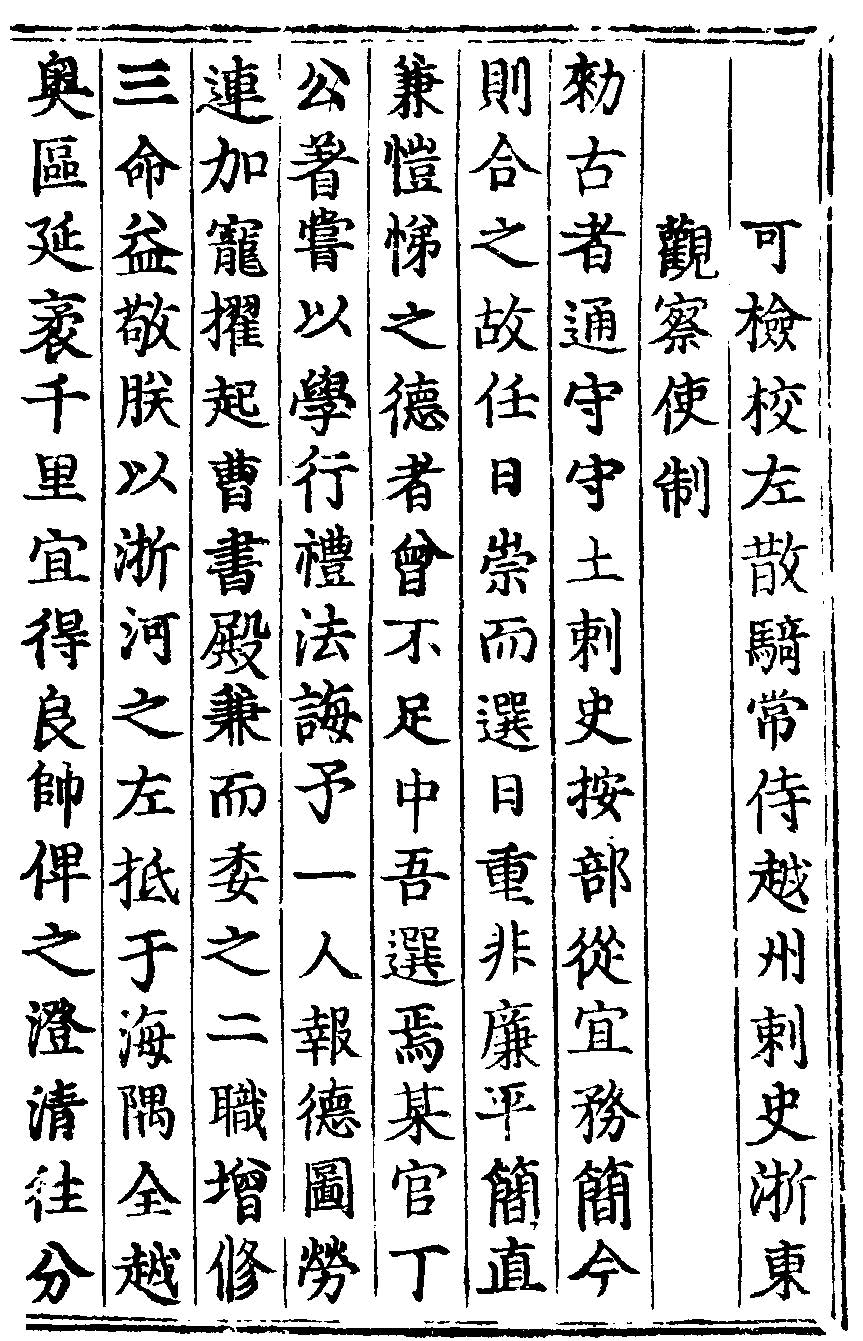 可檢校左散騎常侍越州刺史浙東
觀察使制
勑古者通守守土刺史按部從宜務簡今
則合之故任日崇而選日重非廉平簡直
兼愷悌之德者曾不足中吾選焉某官丁
公著嘗以學行禮法誨予一人報德圖勞
連加寵擢起曹書殿兼而委之二職增修
三命益敬朕以浙河之左抵于海隅全越
奧區延袤千里宜得良帥俾之澄清往分